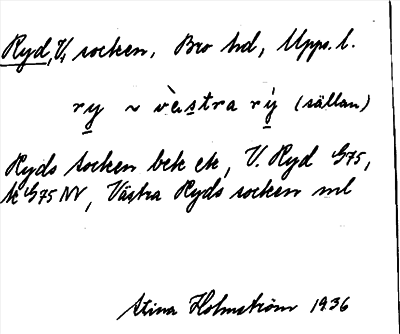 Ryd, V, socken, Bro hd, Upps. l.
ry ~ vàstra rý (sällan)
Ryds socken bek ek, V. Ryd G75,
k G75 NV, Västra Ryds socken ml
Stina Holmström 1936